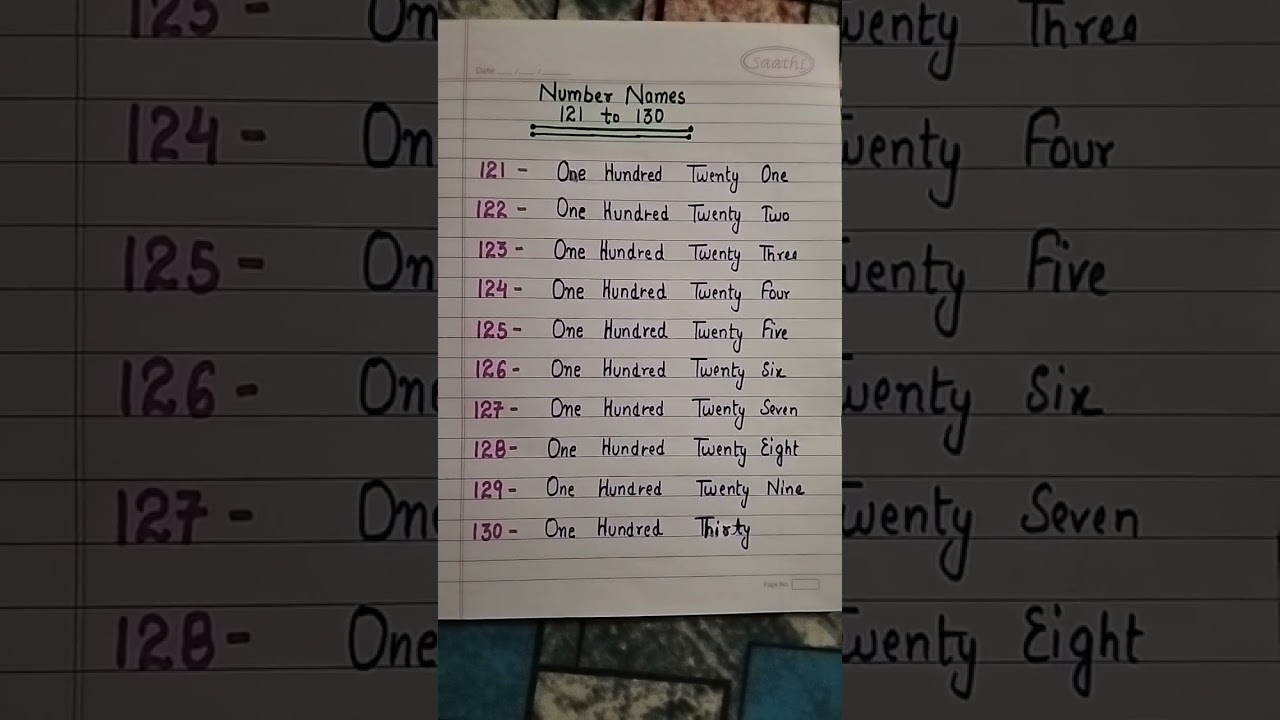 saathi
Date __/__/____
Number Names
121 to 130
121 - One Hundred Twenty One
122 - One Hundred Twenty Two
123 - One Hundred Twenty Three
124 - One Hundred Twenty Four
125 - One Hundred Twenty Five
126 - One Hundred Twenty Six
127 - One Hundred Twenty Seven
128 - One Hundred Twenty Eight
129 - One Hundred Twenty Nine
130 - One Hundred Thirty
Page No